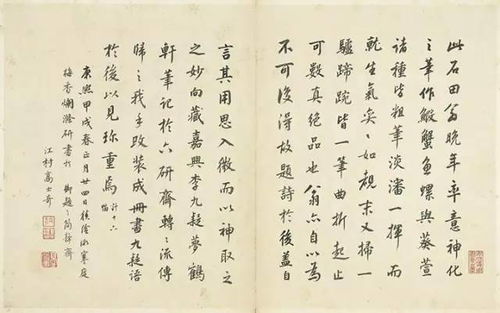 此石田翁晚年率意神化
之筆作鰕蟹魚螺與葵萱
諸種皆粗筆淡瀋一揮而
就生氣奕〻如覿末又掃一
驢蹄踠皆一筆曲折起止
可數真絕品也翁亦自以為
不可復得故詩於後盖自
言其用思入微而以神取之
之妙向藏嘉興李九疑夢鶴
軒筆記於六研齋轉〻流傳
歸之我手改裝成冊書九疑語
於後以見珍重焉
康熙甲戌春正月廿四日積陰微寒庭
梅香爛滌研書於 御題〻簡靜齋
江村高士奇